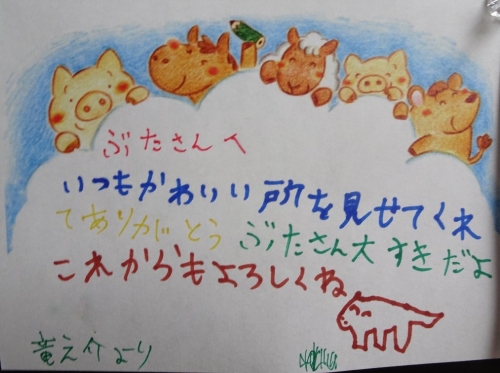 ぶたさんへ
いつもかわいい所を見せてくれ
てありがとう ぶたさん大すきだよ
これからもよろしくね
竜之介より